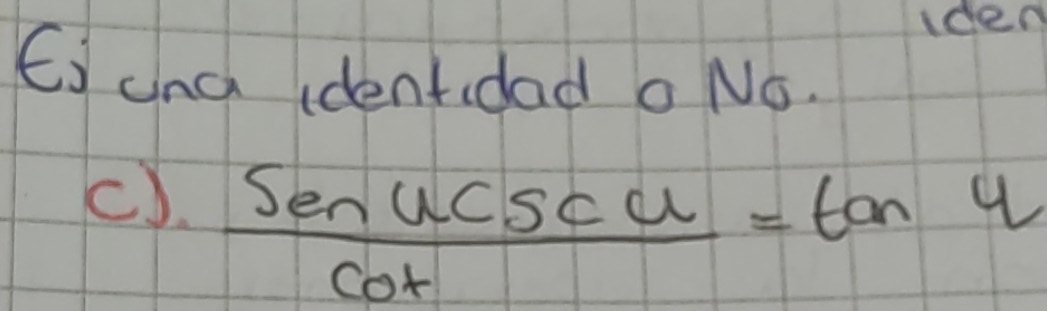 iden
Es una identidad o No.
c). Sen u csc u / cot = tan u